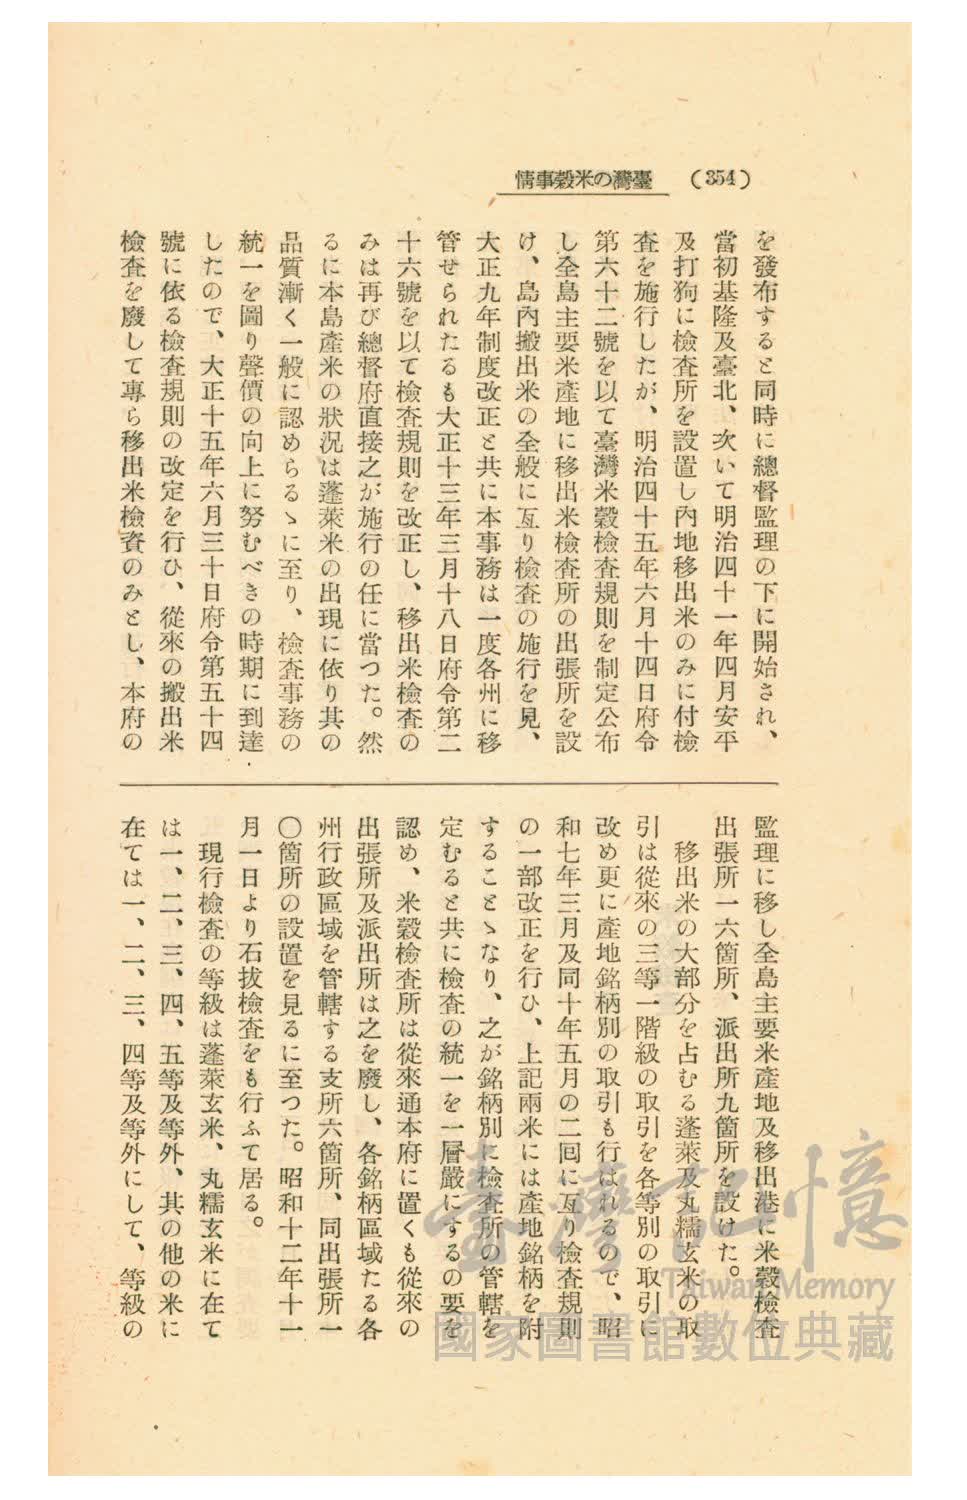 (354) 臺灣の米穀事情
を發布すると同時に總督監理の下に開始され、
當初基隆及臺北、次いで明治四十一年四月安平
及打狗に檢査所を設置し內地移出米のみに付檢
査を施行したが、明治四十五年六月十四日府令
第六十二號を以て臺灣米穀檢査規則を制定公布
し全島主要米產地に移出米檢査所の出張所を設
け、島內搬出米の全般に亙り檢査の施行を見、
大正九年制度改正と共に本事務は一度各州に移
管せられたるも大正十三年三月十八日府令第二
十六號を以て檢査規則を改正し、移出米檢査の
みは再び總督府直接之が施行の任に當つた。然
るに本島產米の狀況は蓬萊米の出現に依り其の
品質漸く一般に認めらるゝに至り、檢査事務の
統一を圖り聲價の向上に努むべきの時期に到達
したので、大正十五年六月三十日府令第五十四
號に依る檢査規則の改定を行ひ、從來の搬出米
檢査を廢して專ら移出米檢査のみとし、本府の
監理に移し全島主要米產地及移出港に米穀檢査
出張所一六箇所、派出所九箇所を設けた。
移出米の大部分を占むる蓬萊及丸糯玄米の取
引は從來の三等一階級の取引を各等別の取引に
改め更に產地銘柄別の取引も行はれるので、昭
和七年三月及同十年五月の二囘に亙り檢査規則
の一部改正を行ひ、上記兩米には產地銘柄を附
することゝなり、之が銘柄別に檢査所の管轄を
定むると共に檢査の統一を一層嚴にするの要を
認め、米穀檢査所は從來通本府に置くも從來の
出張所及派出所は之を廢し、各銘柄區域たる各
州行政區域を管轄する支所六箇所、同出張所一
〇箇所の設置を見るに至つた。昭和十二年十一
月一日より石拔檢査をも行ふて居る。
現行檢査の等級は蓬萊玄米、丸糯玄米に在て
は一、二、三、四、五等及等外、其の他の米に
在ては一、二、三、四等及等外にして、等級の
臺灣記憶
Taiwan Memory
國家圖書館數位典藏